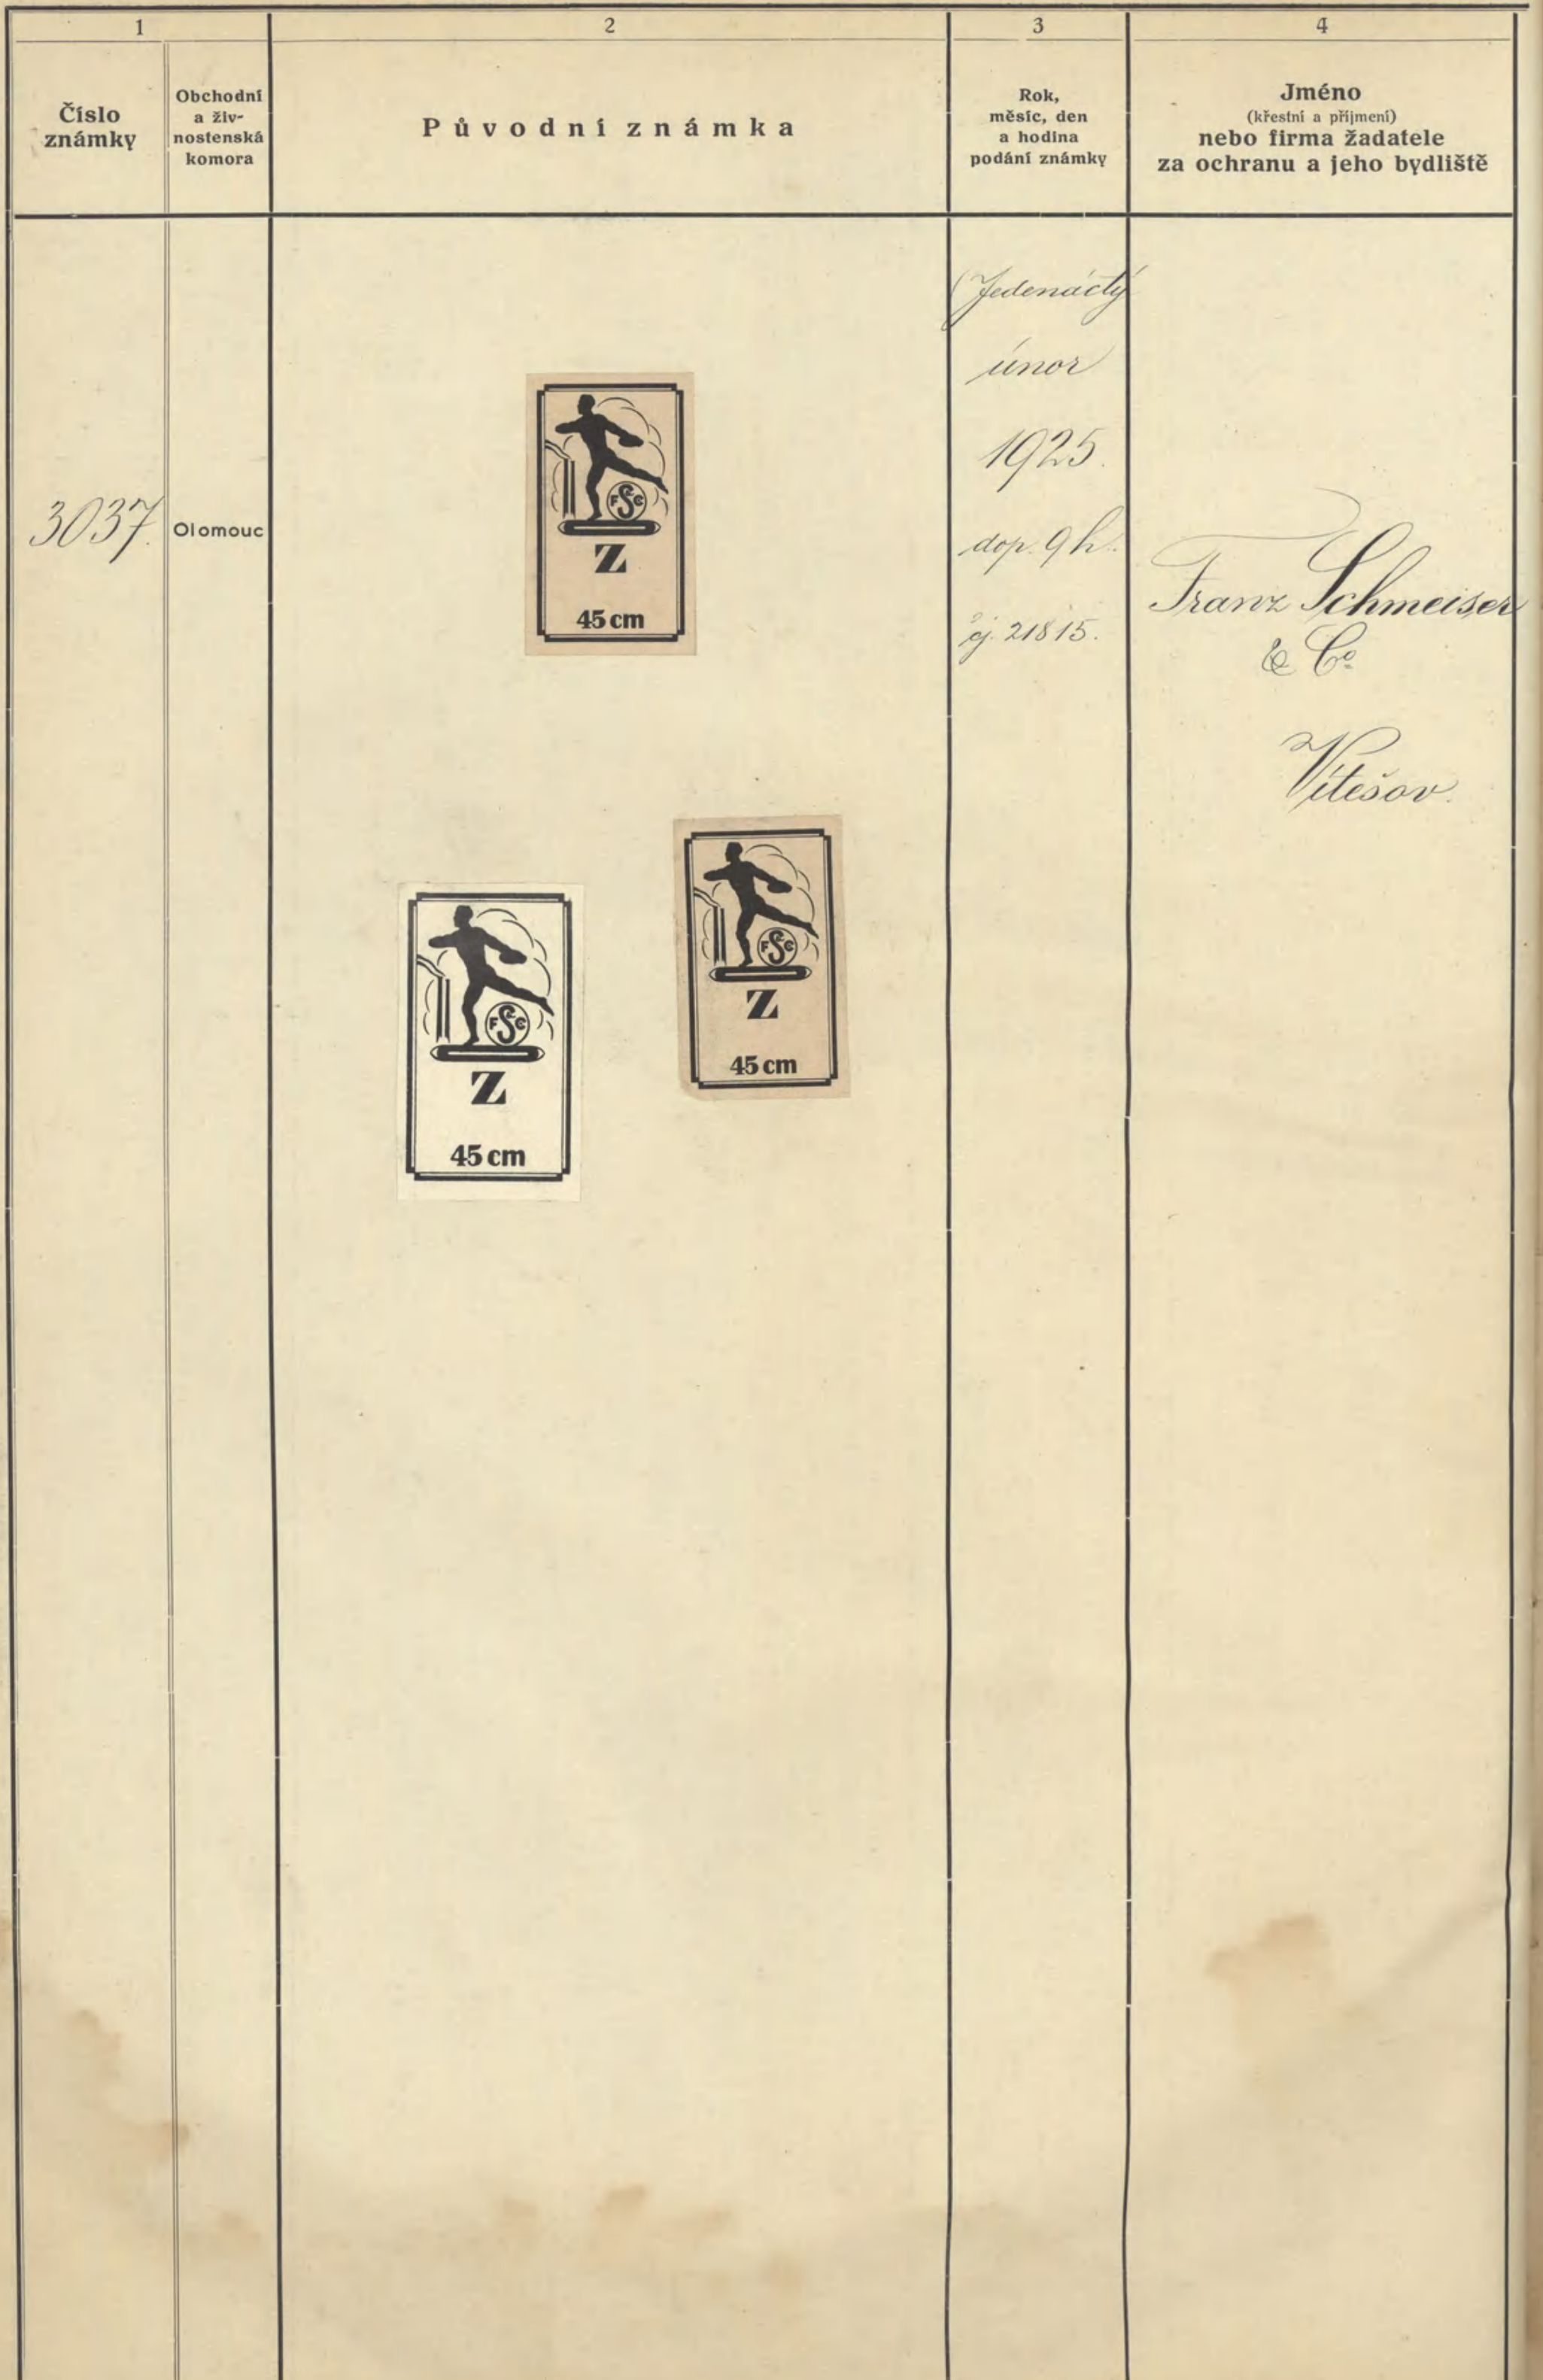 1
2
3
4
Číslo
známky
Obchodní
a živ-
nostenská
komora
Původní známka
Rok,
měsíc, den
a hodina
podání známky
Jméno
(křestní a příjmení)
nebo firma žadatele
za ochranu a jeho bydliště
3037.
Olomouc
FSC
Z
45 cm
FSC
Z
45 cm
FSC
Z
45 cm
Jedenáctý
únor
1925.
dop. 9 h.
čj. 21815.
Franz Schmeiser
& Co.
Vitešov.